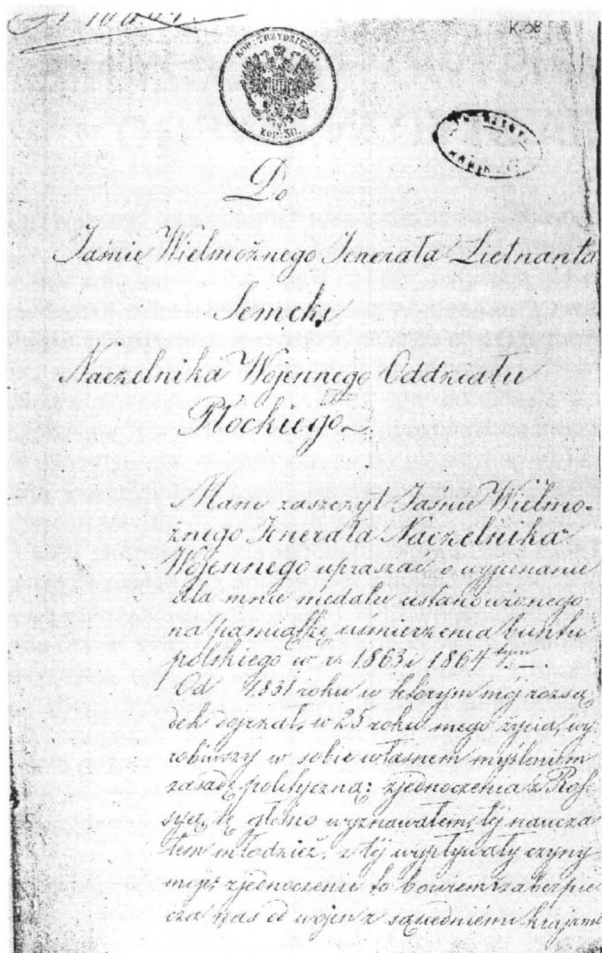 K-68
KOP: TRZYDZIEŚCI.
KOP: 30.
Do
Jaśnie Wielmożnego Jenerała Lietnanta
Semeki
Naczelnika Wojennego Oddziału
Płockiego
Mam zaszczyt Jaśnie Wielmo-
żnego Jenerała Naczelnika
Wojennego upraszać o wyjednanie
dla mnie medalu ustanowionego
na pamiątkę uśmierzenia buntu
polskiego w r. 1863 i 1864 tym
Od 1831 roku w którym mój rozsą
dek dojrzał, w 25 roku mego życia, wy
robiwszy w sobie własnem myśleniem
zasadę polityczną: zjednoczenia z Ros-
syą, tę głośno wyznawałem, tej naucza
łem młodzież, z tej wypływały czyny
moje; zjednoczenie to bowiem zabezpie
cza nas od wojen z sąsiedniemi krajami